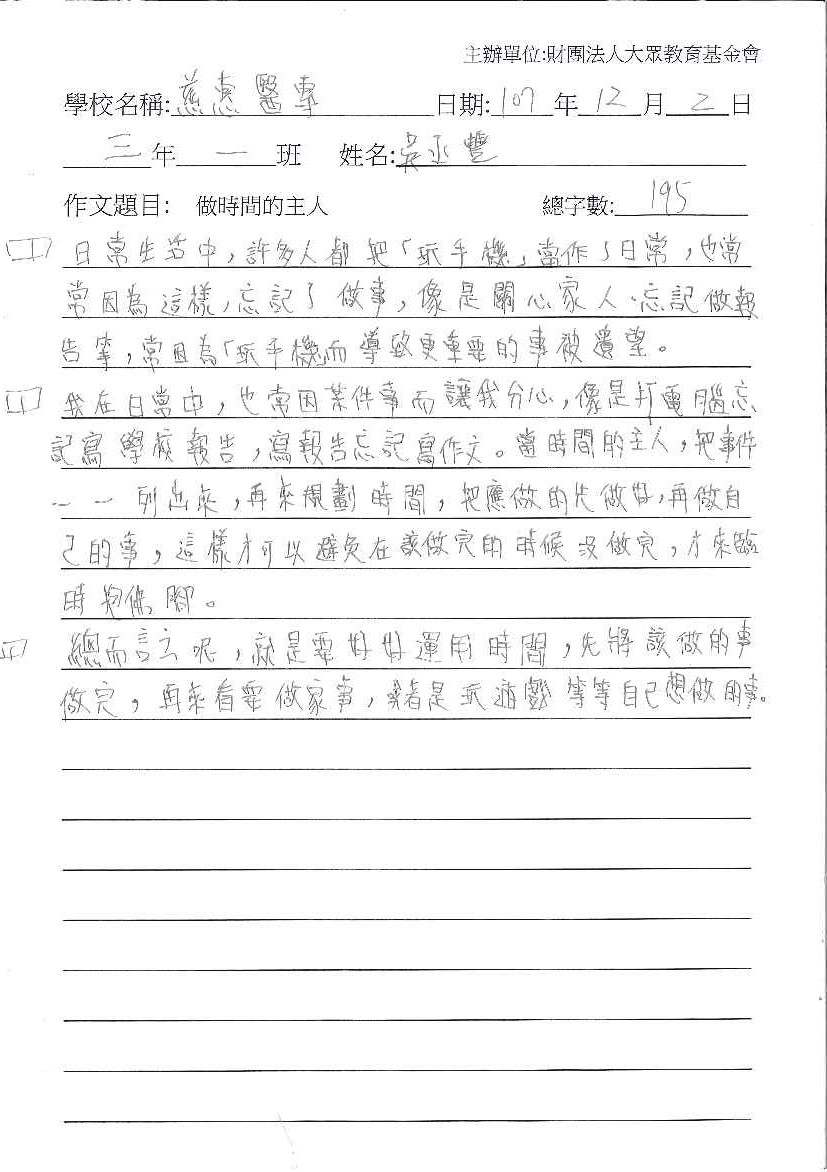 主辦單位:財團法人大眾教育基金會
學校名稱:慈惠醫專 日期:107年12月2日
三年一班 姓名:吳丞豐
作文題目: 做時間的主人 總字數:195
日常生活中,許多人都把「玩手機」當作了日常,也常
常因為這樣,忘記了做事,像是關心家人、忘記做報
告等,常因為「玩手機」而導致更重要的事被遺望。
我在日常中,也常因某件事而讓我分心,像是打電腦忘
記寫學校報告,寫報告忘記寫作文。當時間的主人,把事件
一一列出來,再來規劃時間,把應做的先做好,再做自
己的事,這樣才可以避免在該做完的時候沒做完,才來臨
時抱佛腳。
總而言之呢,就是要好好運用時間,先將該做的事
做完,再來看要做家事,或者是玩遊戲等等自己想做的事。